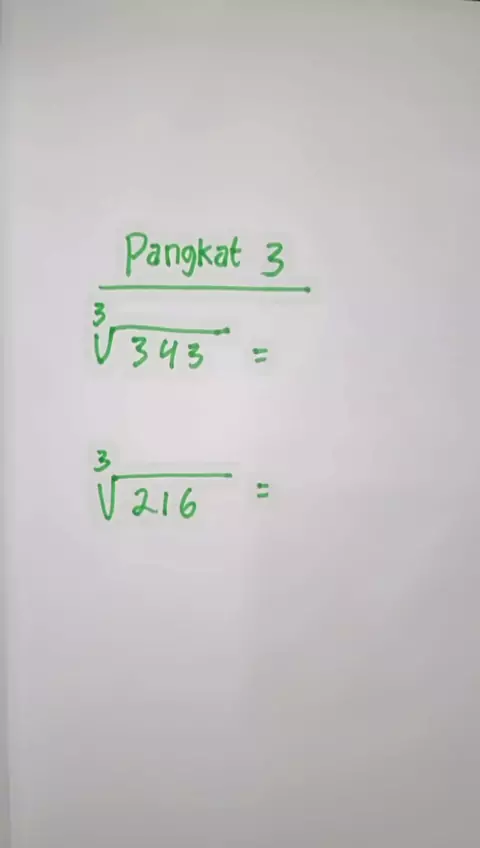 Pangkat 3
∛343 =
∛216 =